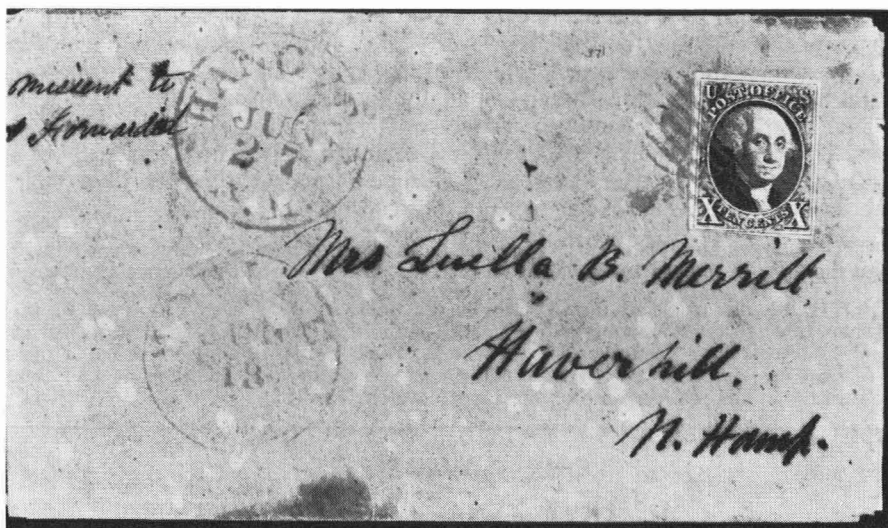 missent to
& Forwarded
HANO
JU
27
N.H.
U
POST OFFICE
X TEN CENTS X
Mrs. Luella B. Merrill
Haverhill.
N. Hamp.
18